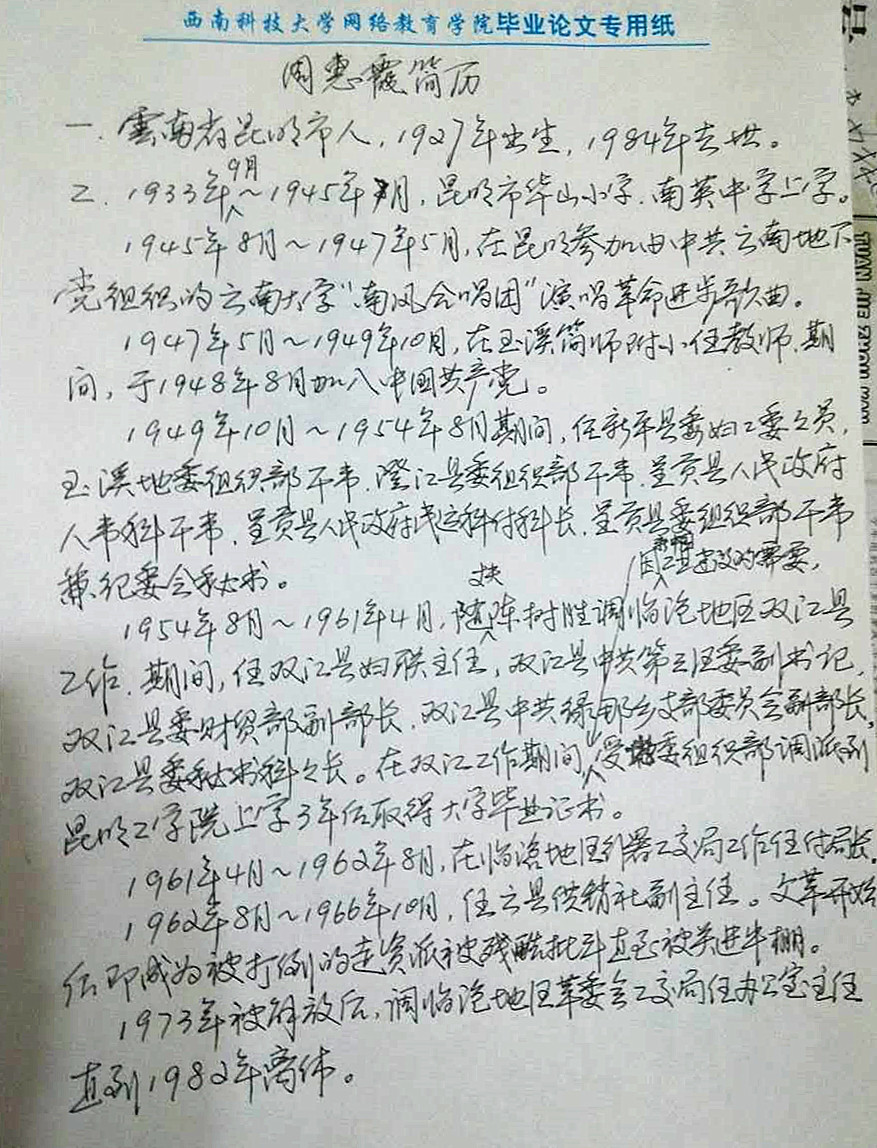 西南科技大学网络教育学院毕业论文专用纸
周惠霞简历
一. 雲南省昆明市人，1927年出生，1984年去世。
9月
二. 1933年～1945年7月，昆明市华山小学.南英中学上学。
1945年8月～1947年5月，在昆明参加由中共云南地下
党组织的云南大学“南风合唱团”演唱革命进步歌曲。
1947年5月～1949年10月，在玉溪简师附小任教师.期
间，于1948年8月加入中国共产党。
1949年10月～1954年8月期间，任新平县委妇工委之员，
玉溪地委组织部干事.澄江县委组织部干事.呈贡县人民政府
人事科干事.呈贡县人民政府民运科付科长.呈贡县委组织部干事
兼纪委会秘书。
因工建设的需要，
1954年8月～1961年4月，随陈树胜调临沧地区双江县
工作.期间，任双江县妇联主任，双江县中共第三区委副书记，
双江县委财贸部副部长.双江县中共绿那乡支部委员会副部长，
双江县委秘书科之长。在双江工作期间，受地委组织部调派到
昆明工学院上学3年后取得大学毕业证书。
1961年4月～1962年8月，在临沧地区行署工交局工作任付局长.
1962年8月～1966年10月，任云县供销社副主任。文革开始
后即成为被打倒的走资派被残酷批斗直至被关进牛棚。
1973年被解放后，调临沧地区革委会工交局任办公室主任
直到1982年离休。